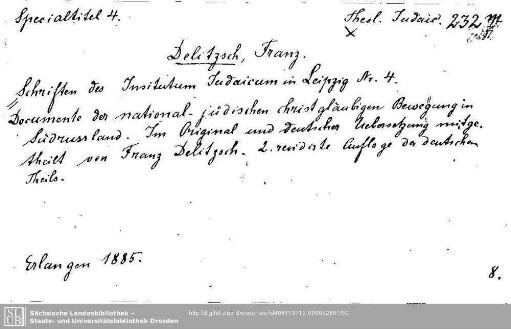 Specialtitel 4.
Theol. Judaic. 232 m
Delitzsch, Franz.
Schriften des Insitutum Judaicum in Leipzig Nr. 4.
Documente der national-jüdischen christgläubigen Bewegung in
Südrussland. Im Original und deutscher Uebersetzung mitge-
theilt von Franz Delitzsch. 2. revidirte Auflage des deutschen
Theils.
Erlangen 1885.
8.
Sächsische Landesbibliothek –
Staats- und Universitätsbibliothek Dresden